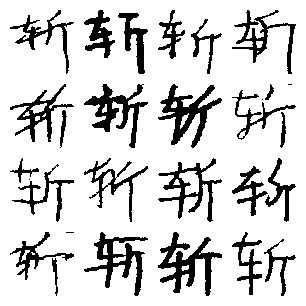 斩斩斩斩
斩斩斩斩
斩斩斩斩
斩斩斩斩